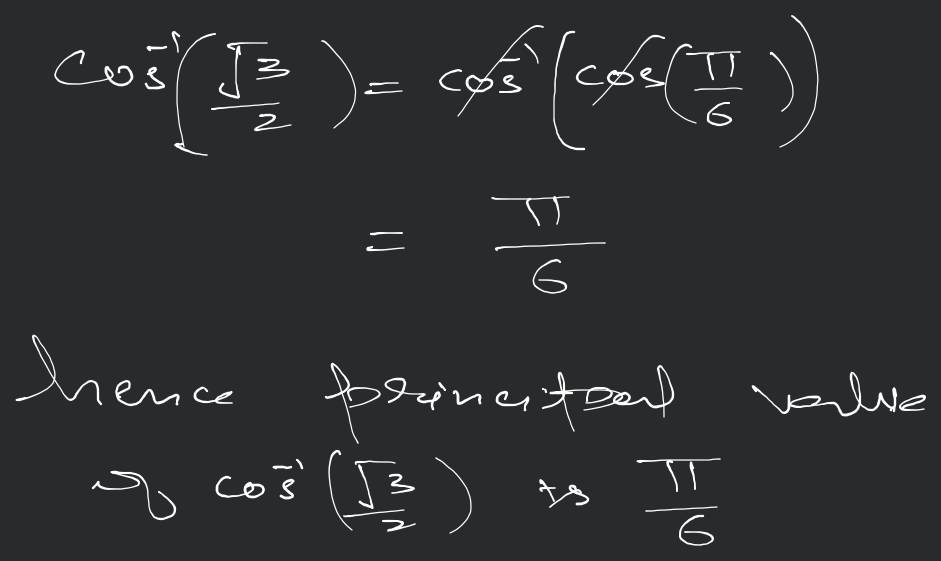 cos⁻¹(√3/2) = cos⁻¹(cos(π/6))
= π/6
hence principal value
of cos⁻¹(√3/2) is π/6